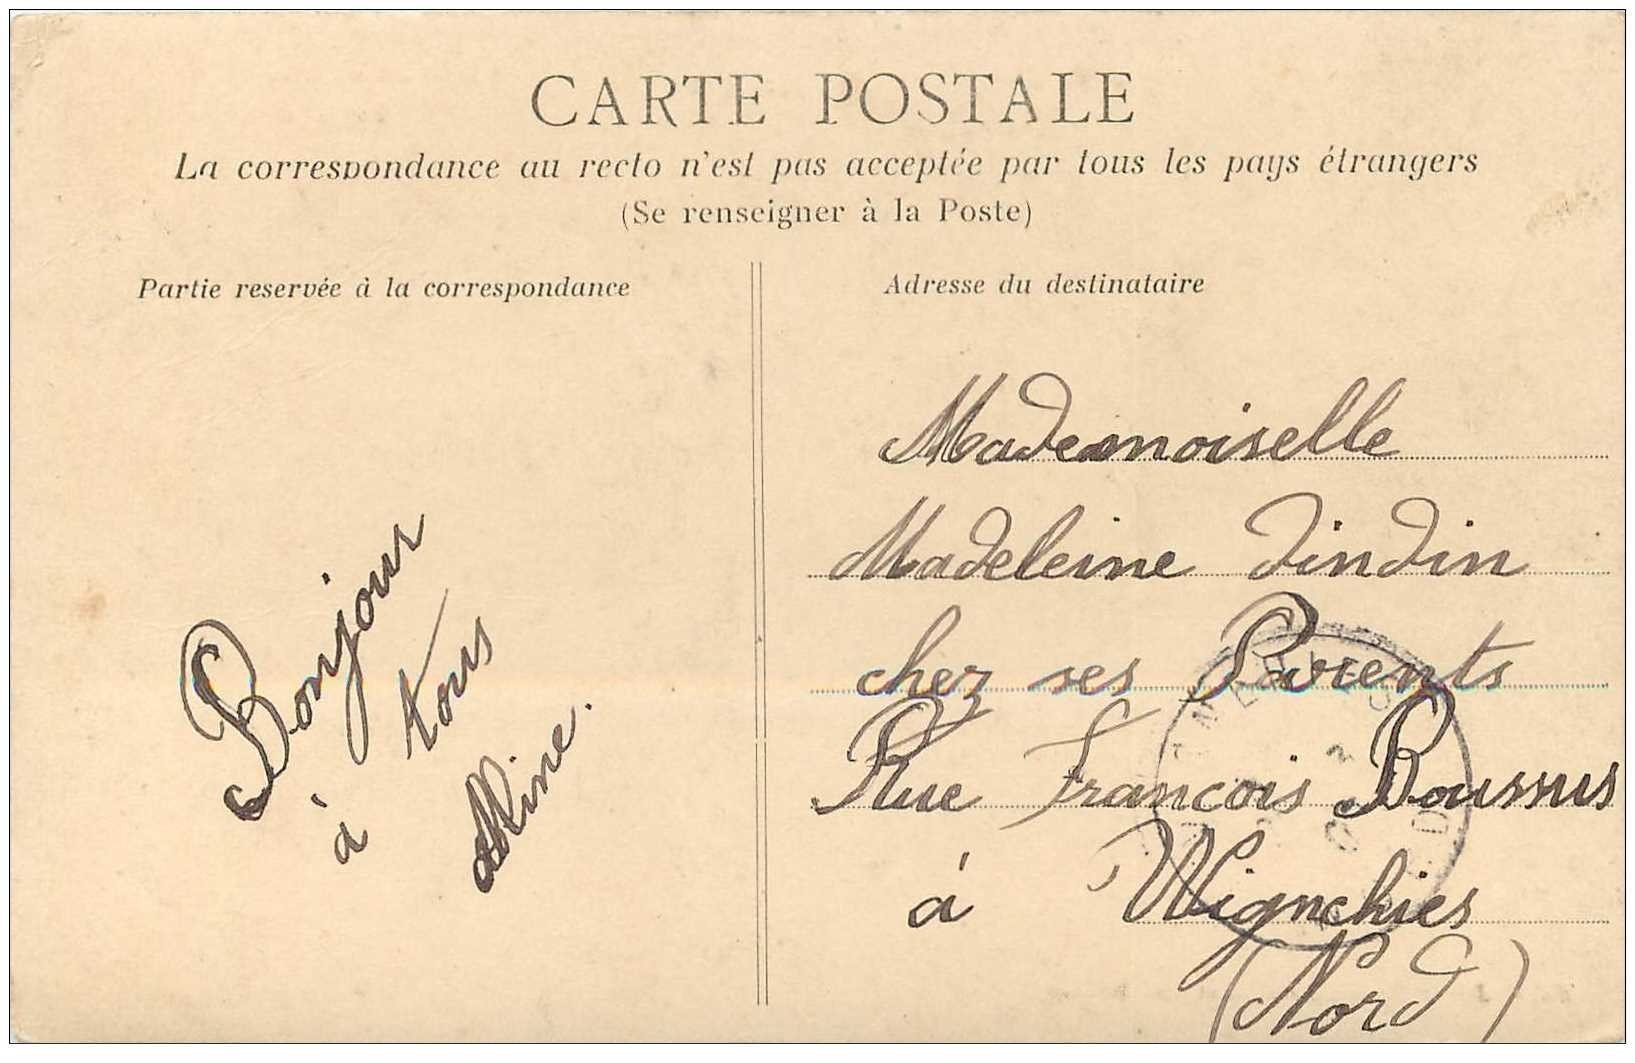 CARTE POSTALE
La correspondance au recto n'est pas acceptée par tous les pays étrangers
(Se renseigner à la Poste)
Partie reservée à la correspondance
Bonjour
à tous
Aline.
Adresse du destinataire
Mademoiselle
Madeleine Dindin
chez ses Parents
Rue Francois Boussus
à Wignehies
(Nord)